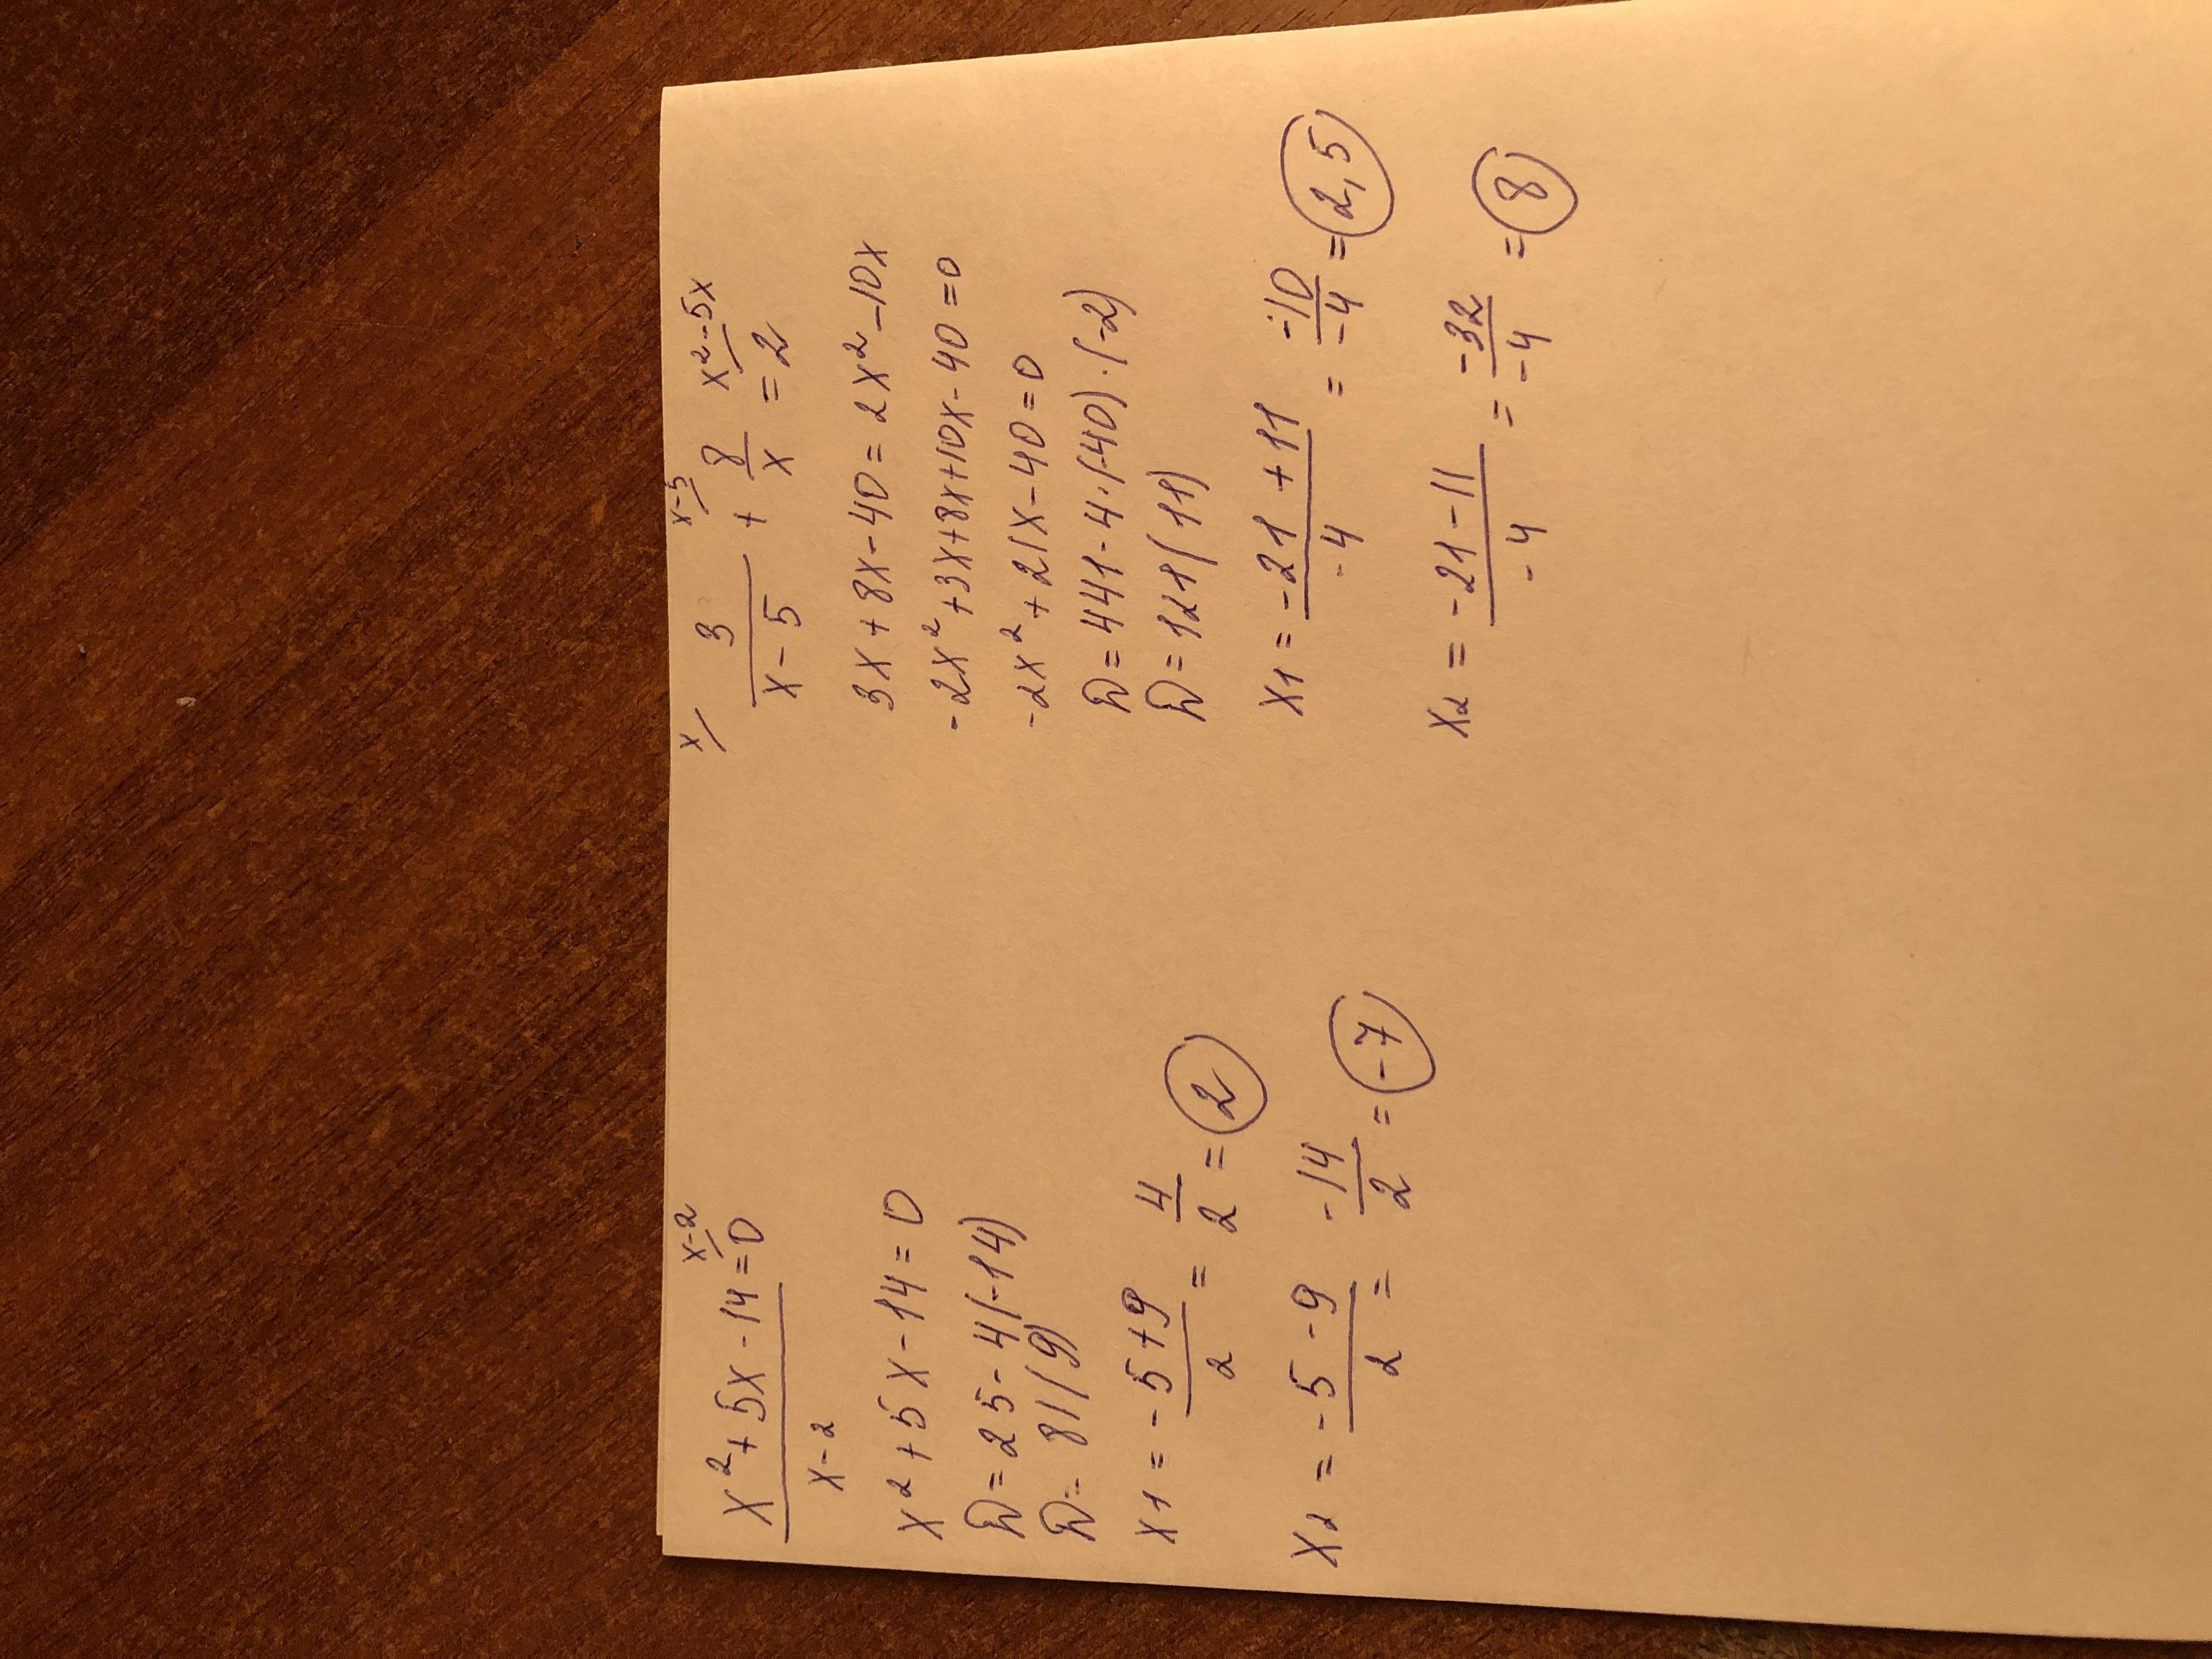 x²+5x-14=0 x-2
x-2
x²+5x-14=0
D=25-4(-14)
D=81(9)
x1=-5+9/2=4/2=2
x2=-5-9/2=-14/2=-7
x x-5 x²-5x
3/x-5+8/x=2
3x+8x-40=2x²-10x
-2x²+3x+8x+10x-40=0
-2x²+21x-40=0
D=441-4·(-40)·(-2)
D=121(11)
x1=-21+11/-4=-10/-4=2,5
x2=-21-11/-4=-32/-4=8